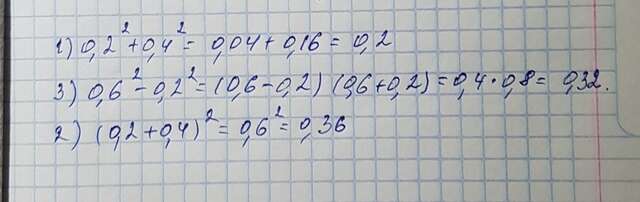 1) 0,2² + 0,4² = 0,04 + 0,16 = 0,2
3) 0,6² - 0,2² = (0,6 - 0,2) (0,6 + 0,2) = 0,4 · 0,8 = 0,32.
2) (0,2 + 0,4)² = 0,6² = 0,36